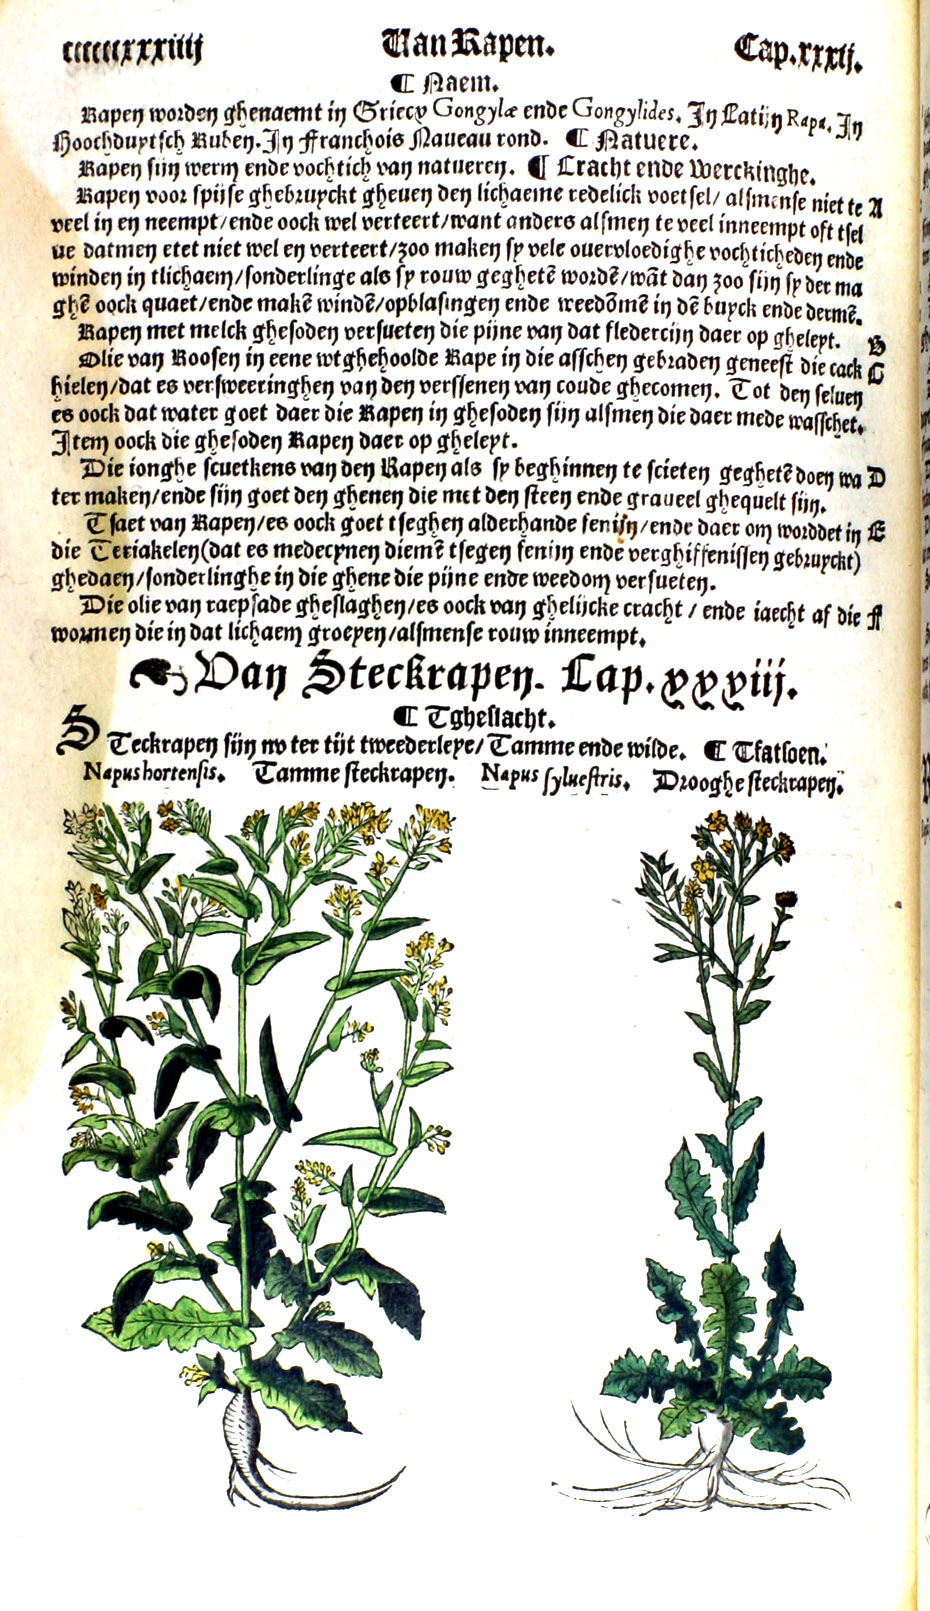 ccccccxxxiiij Van Rapen. Cap.xxxij.
¶ Naem.
Rapen worden ghenaemt in Griecx Gongylæ ende Gongylides. In Latijn Rapa. In
Hoochduytsch Ruben. In Franchois Naueau rond. ¶ Natuere.
Rapen sijn werm ende vochtich van natueren. ¶ Cracht ende Werckinghe.
Rapen voor spijse ghebruyckt gheuen den lichaeme redelick voetsel/ alsmense niet te A
veel in en neempt/ende oock wel verteert/want anders alsmen te veel inneempt oft tsel
ue datmen etet niet wel en verteert/zoo maken sy vele ouervloedighe vochticheden ende
winden in tlichaem/sonderlinge als sy rouw geghetē wordē/wāt dan zoo sijn sy der ma
ghē oock quaet/ende makē windē/opblasingen ende weedōmē in dē buyck ende dermē.
Rapen met melck ghesoden versueten die pijne van dat fledercijn daer op gheleyt. B
Olie van Roosen in eene wtghehoolde Rape in die asschen gebraden geneest die cack C
hielen/dat es versweeringhen van den verssenen van coude ghecomen. Tot den seluen
es oock dat water goet daer die Rapen in ghesoden sijn alsmen die daer mede wasschet.
Item oock die ghesoden Rapen daer op gheleyt.
Die ionghe scuetkens van den Rapen als sy beghinnen te scieten geghetē doen wa D
ter maken/ende sijn goet den ghenen die met den steen ende graueel ghequelt sijn.
Tsaet van Rapen/es oock goet tseghen alderhande fenijn/ende daer om worddet in E
die Teriakelen(dat es medecynen diemē tsegen fenijn ende verghiffenissen gebruyckt)
ghedaen/sonderlinghe in die ghene die pijne ende weedom versueten.
Die olie van raepsade gheslaghen/es oock van ghelijcke cracht / ende iaecht af die F
wormen die in dat lichaem groeyen/alsmense rouw inneempt.
Van Steckrapen. Cap.xxxiij.
¶ Tgheslacht.
STeckrapen sijn nv ter tijt tweederleye/ Tamme ende wilde. ¶ Tfatsoen.
Napus hortensis. Tamme steckrapen. Napus syluestris. Drooghe steckrapen.